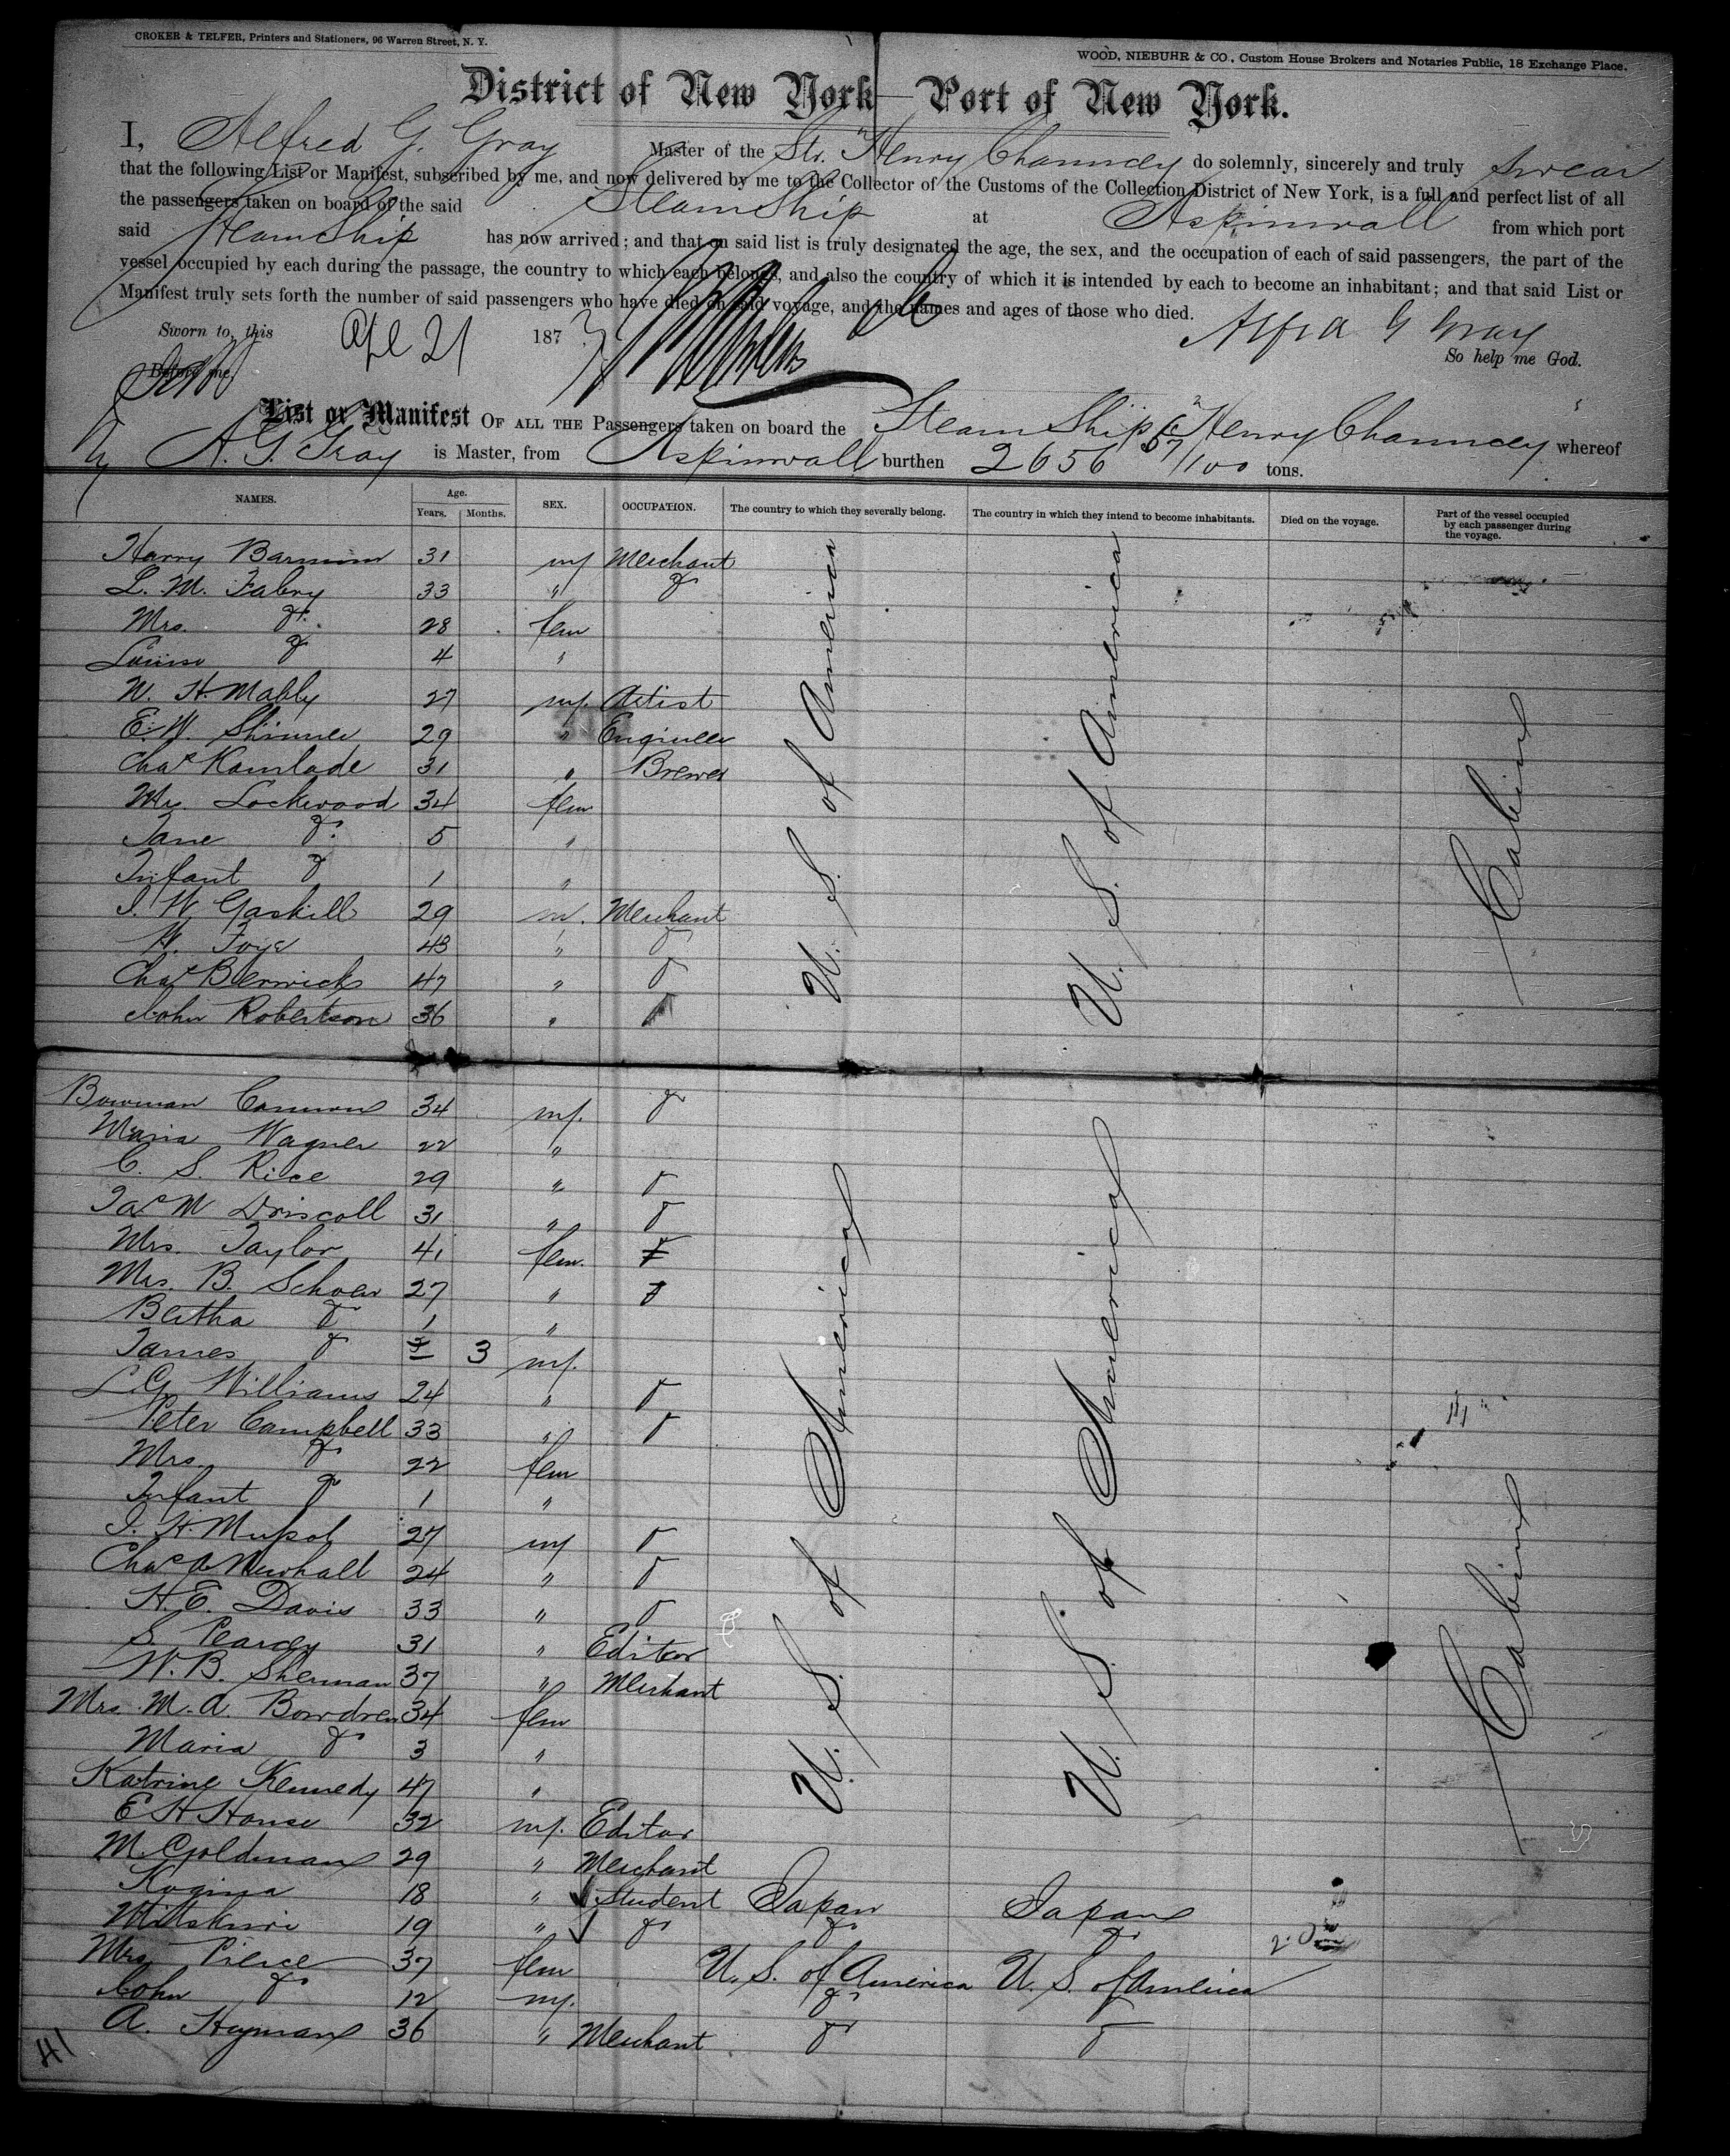 CROKER & TELFER, Printers and Stationers, 96 Warren Street, N. Y.
WOOD, NIEBUHR & CO., Custom House Brokers and Notaries Public, 18 Exchange Place.
District of New York — Port of New York.
I, Alfred G. Gray Master of the Str. "Henry Chauncey do solemnly, sincerely and truly swear
that the following List or Manifest, subscribed by me, and now delivered by me to the Collector of the Customs of the Collection District of New York, is a full and perfect list of all
the passengers taken on board of the said Steam Ship at Aspinwall from which port
said Steam Ship has now arrived; and that on said list is truly designated the age, the sex, and the occupation of each of said passengers, the part of the
vessel occupied by each during the passage, the country to which each belongs, and also the country of which it is intended by each to become an inhabitant; and that said List or
Manifest truly sets forth the number of said passengers who have died on said voyage, and the names and ages of those who died.
Sworn to, this Apl 21 1873 Alfrd G Gray
Before me, So help me God.
List or Manifest OF ALL THE Passengers taken on board the Steam Ship "Henry Chauncey" whereof
A. G. Gray is Master, from Aspinwall burthen 2656 57/100 tons.
NAMES. Age. Years. Months. SEX. OCCUPATION. The country to which they severally belong. The country in which they intend to become inhabitants. Died on the voyage. Part of the vessel occupied by each passenger during the voyage.
Harry 31 m Merchant
L. M. Fabry 33 " do
Mrs. do 28 fem
Louise do 4 "
W. H. Mably 27 m. Artist
E. W. 29 " Engineer
Chas Kamlade 31 " Brewer
Mrs. Lockwood 34 fem
Jane do 5 "
Infant do 1 "
J. W. Gaskill 29 m. Merchant
W. Foye 43 " do
Chas Berwick 47 " do
John Robertson 36 "
U. S. of America U. S. of America Cabin
Bowman Cannon 34 m. do
Maria Wagner 22 "
C. S. Rice 29 " do
Jas M Driscoll 31 " do
Mrs. Taylor 41 fem. do
Mrs. B. Schoen 27 " do
Bertha do 1 "
James do 3 m.
L G Williams 24 " do
Peter Campbell 33 " do
Mrs. do 22 fem
Infant do 1 "
J. H. 27 m do
Chas A Newhall 24 " do
H. E. Davis 33 " do
S. Pearcy 31 " Editor
W. B. Sherman 37 " Merchant
Mrs. M. A. Bowdren 34 fem
Maria do 3 "
Katrine Kennedy 47 "
E H House 32 m. Editor
M Goldman 29 " Merchant
U. S. of America U. S. of America Cabin
18 " Student Japan Japan
Mitskuri 19 " do do do
Mrs Pierce 37 fem U. S. of America U. S. of America
John do 12 m. do
A. Heyman 36 " Merchant do do
41